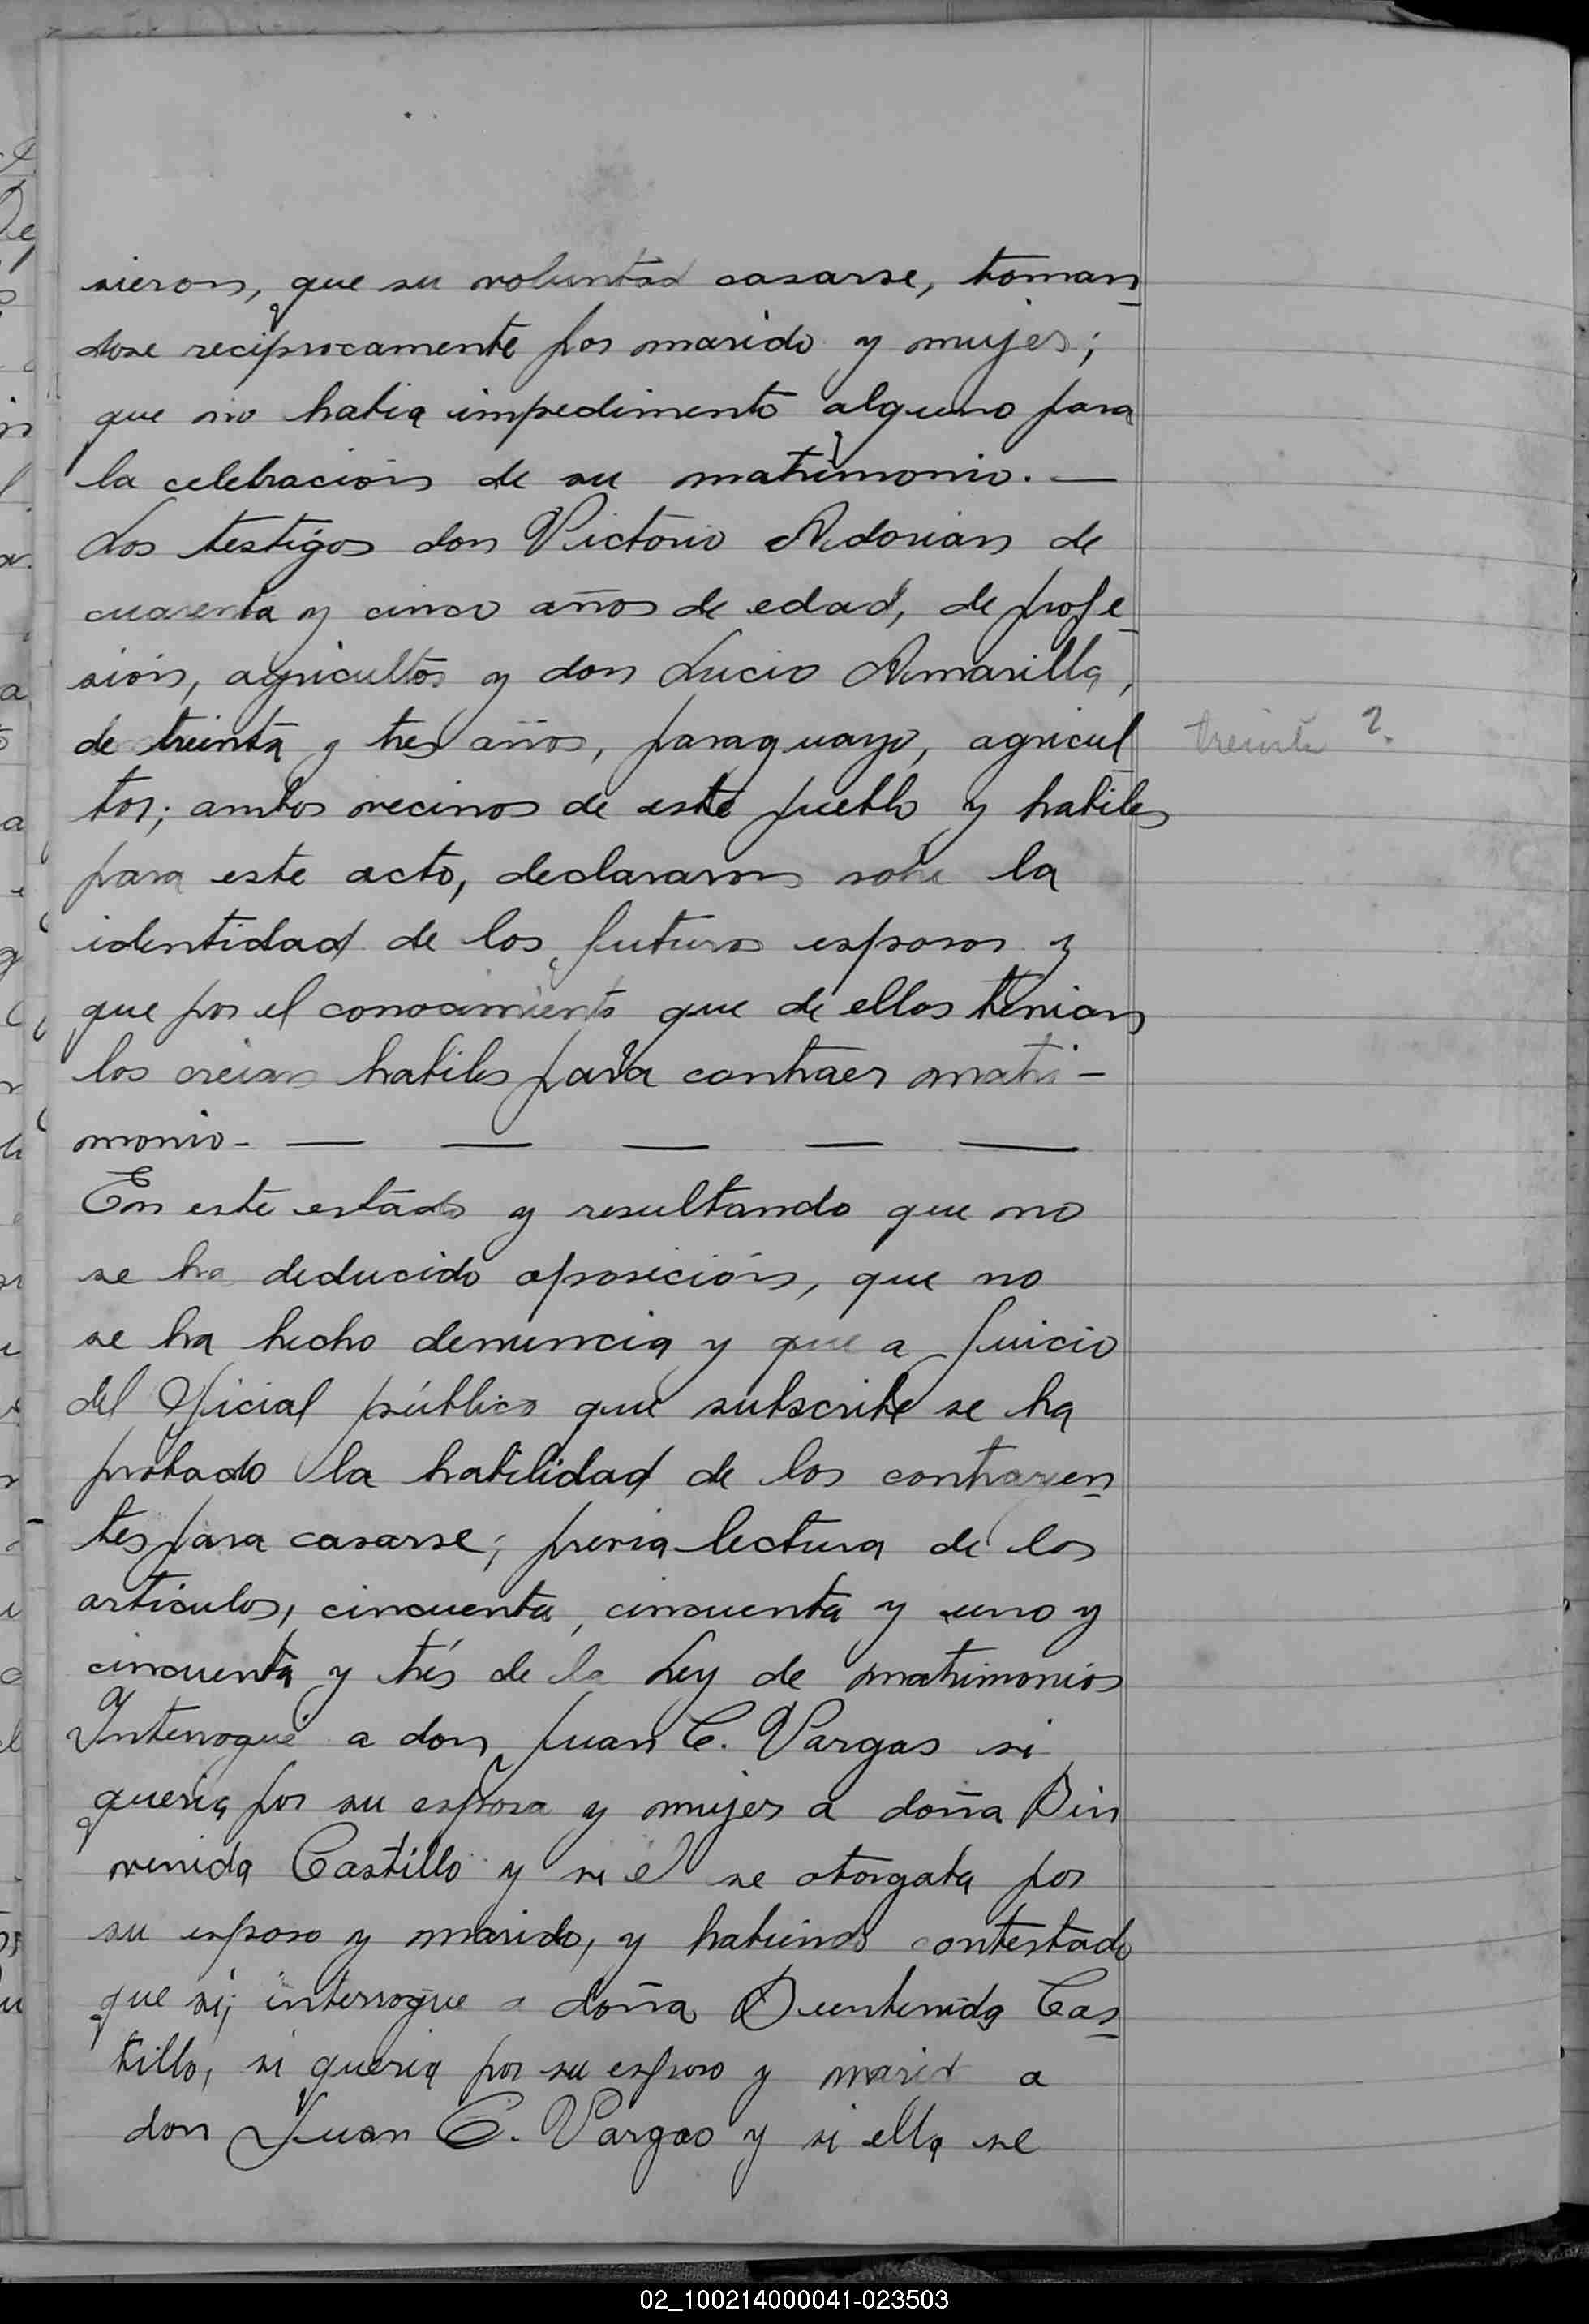 sieron, que su voluntad casarse, toman
dose reciprocamente por marido y mujer;
que no habia impedimento alguno para
la celebración de su matrimonio. —
Los testigos don Victorio Adorian de
cuarenta y cinco años de edad, de profe
sión, agricultor y don Lucio Amarilla,
de treinta y tres años, paraguayo, agricul
treinta ?
tor; ambos vecinos de este pueblo y habiles
para este acto, declararon sobre la
identidad de los futuros esposos y
que por el conocimiento que de ellos tenian
los creian habiles para contraer matri-
monio. — — — — —
En este estado y resultando que no
se ha deducido oposición, que no
se ha hecho denuncia y que a juicio
del Oficial público que subscribe se ha
probado la habilidad de los contrayen
tes para casarse; previa lectura de los
articulos, cincuenta, cincuenta y uno y
cincuenta y trés de la Ley de matrimonios
Interrogué a don Juan C. Vargas si
queria por su esposa y mujer a doña Bin
venida Castillo y si él se otorgaba por
su esposo y marido, y habiendo contestado
que si; interrogue a doña Castillo,
si queria por su esposo y marido a
don Juan C. Vargas y si ella se
02_100214000041-023503